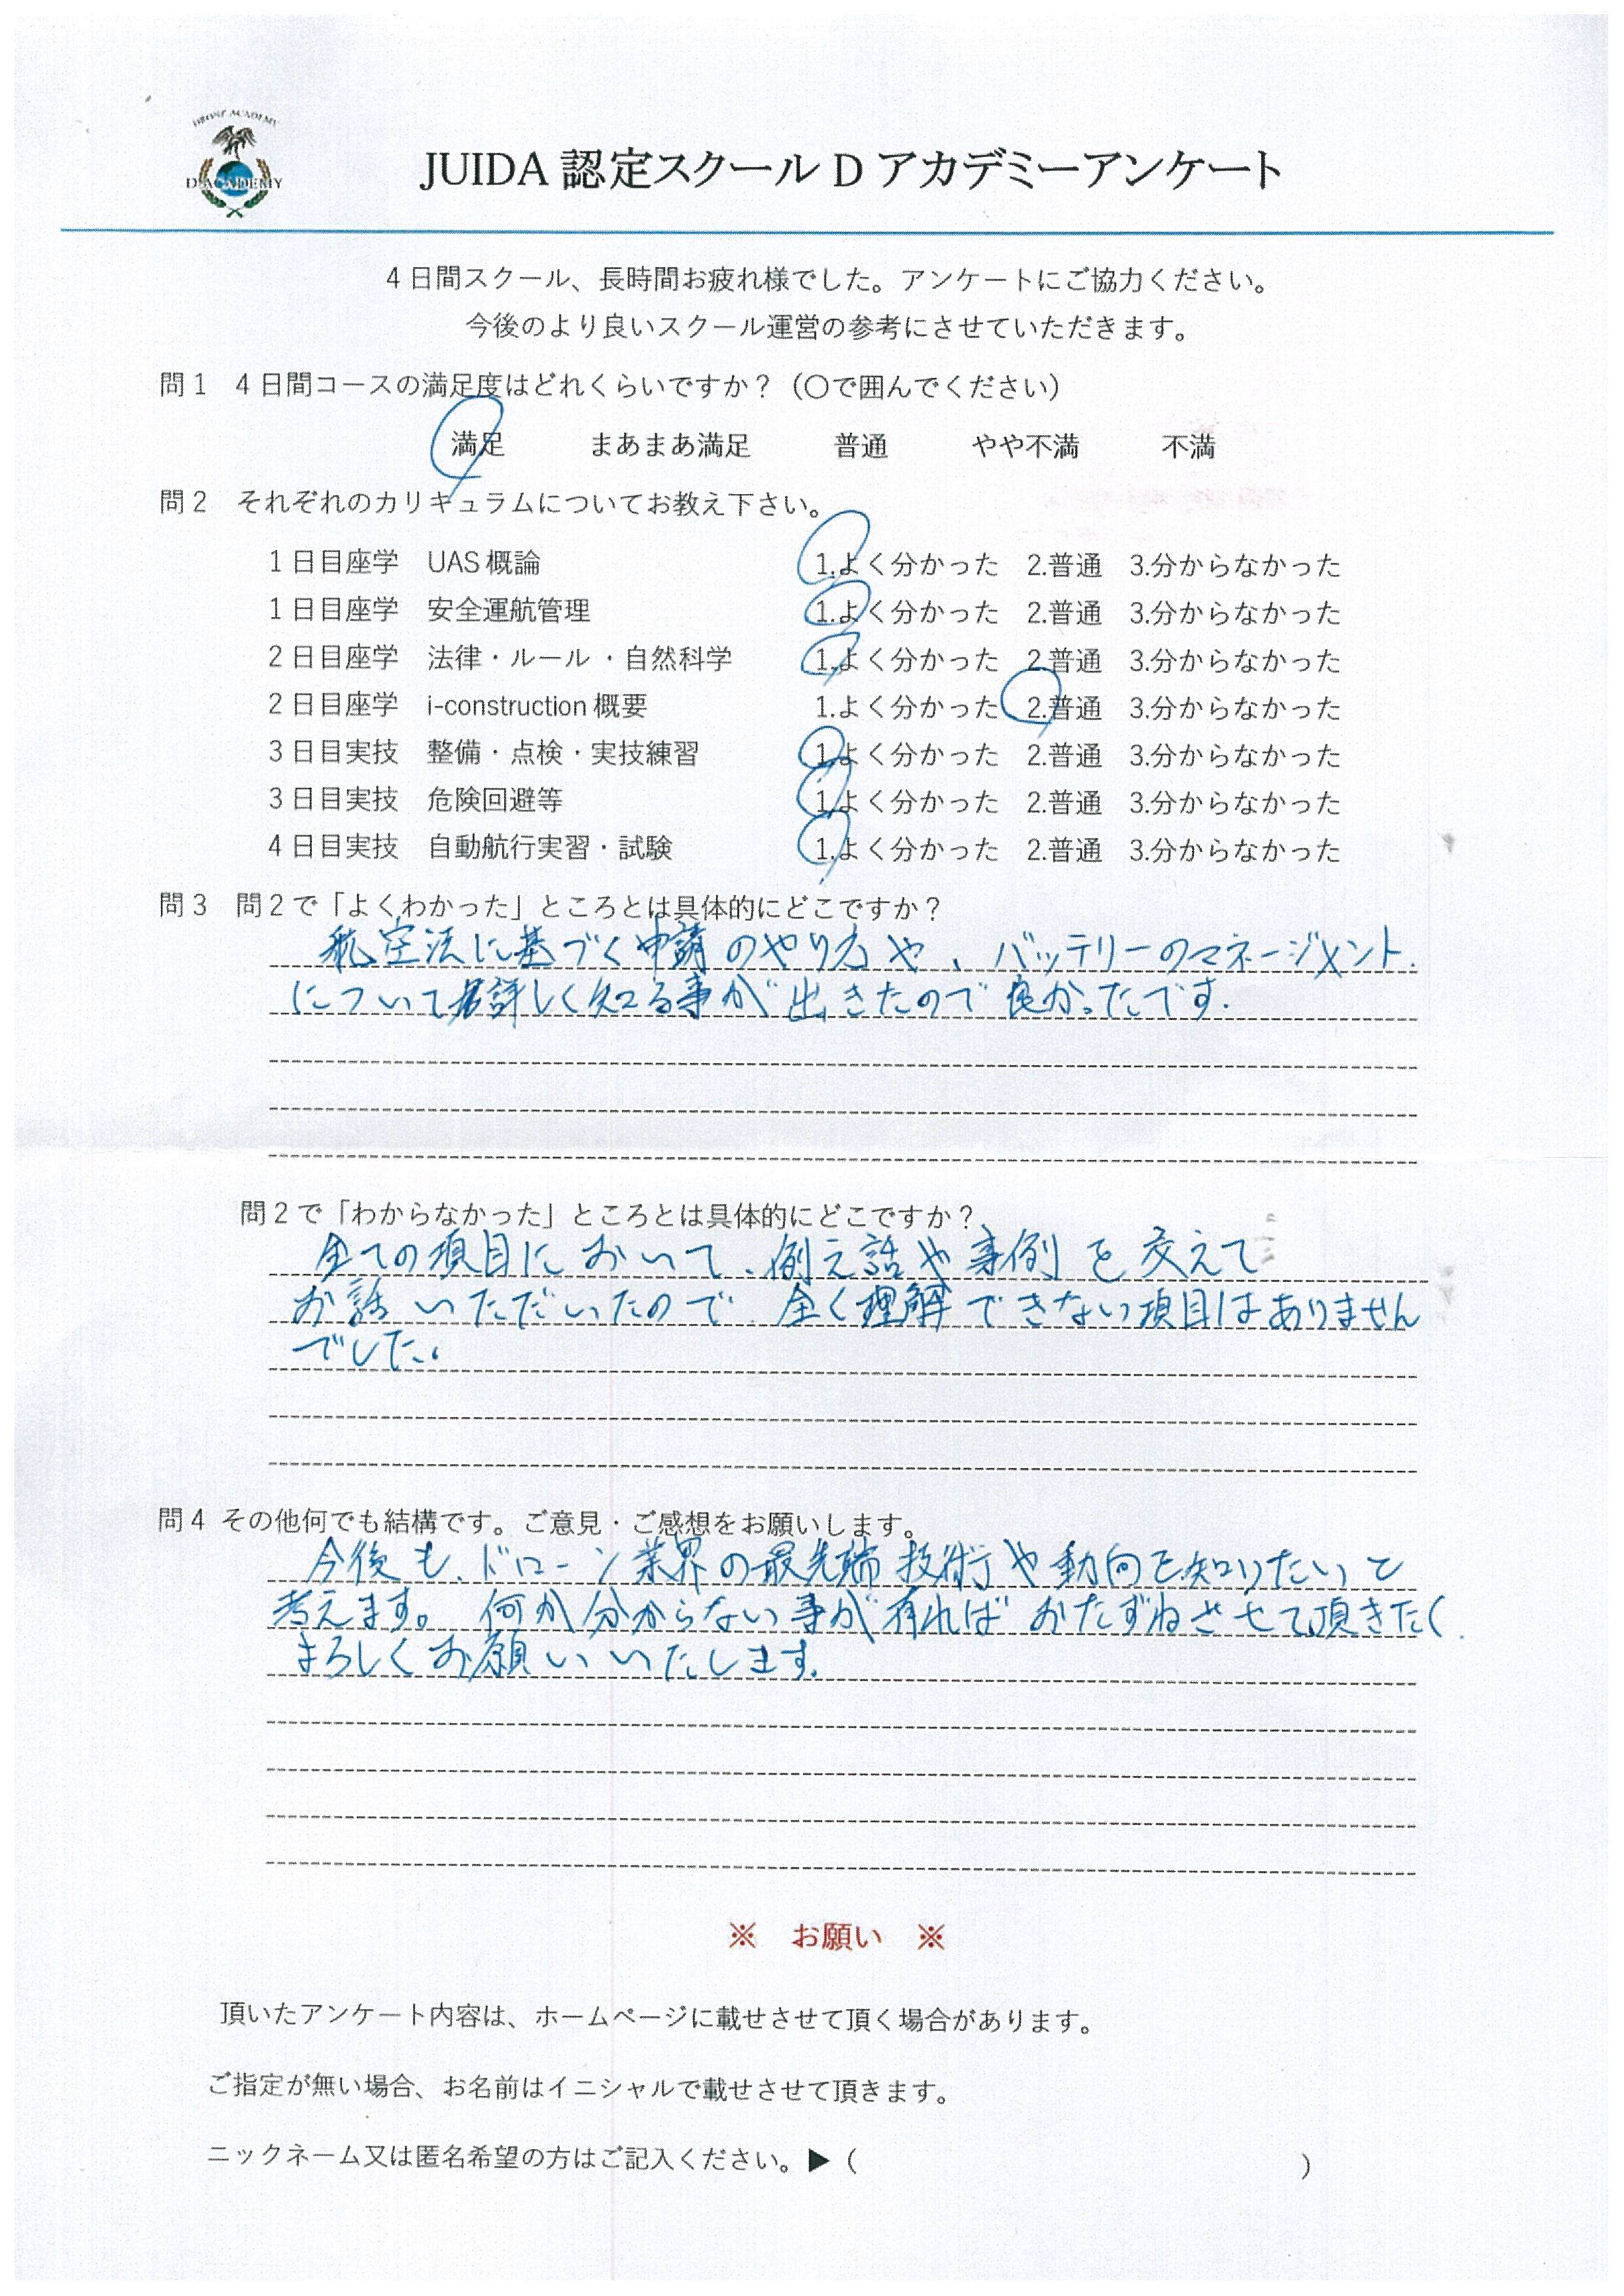 DRONE ACADEMY
D'ACADEMY
JUIDA 認定スクール D アカデミーアンケート
4日間スクール、長時間お疲れ様でした。アンケートにご協力ください。
今後のより良いスクール運営の参考にさせていただきます。
問1 4日間コースの満足度はどれくらいですか？（〇で囲んでください）
満足 まあまあ満足 普通 やや不満 不満
問2 それぞれのカリキュラムについてお教え下さい。
1日目座学 UAS概論 1.よく分かった 2.普通 3.分からなかった
1日目座学 安全運航管理 1.よく分かった 2.普通 3.分からなかった
2日目座学 法律・ルール・自然科学 1.よく分かった 2.普通 3.分からなかった
2日目座学 i-construction概要 1.よく分かった 2.普通 3.分からなかった
3日目実技 整備・点検・実技練習 1.よく分かった 2.普通 3.分からなかった
3日目実技 危険回避等 1.よく分かった 2.普通 3.分からなかった
4日目実技 自動航行実習・試験 1.よく分かった 2.普通 3.分からなかった
問3 問2で「よくわかった」ところとは具体的にどこですか？
航空法に基づく申請のやり方や、バッテリーのマネージメント
について詳しく知る事が出きたので良かったです.
問2で「わからなかった」ところとは具体的にどこですか？
全ての項目において、例え話や事例を交えて
お話いただいたので、全く理解できない項目はありません
でした。
問4 その他何でも結構です。ご意見・ご感想をお願いします。
今後も、ドローン業界の最先端技術や動向を知りたいと
考えます。何か分からない事が有ればおたずねさせて頂きたく
よろしくお願いいたします.
※ お願い ※
頂いたアンケート内容は、ホームページに載せさせて頂く場合があります。
ご指定が無い場合、お名前はイニシャルで載せさせて頂きます。
ニックネーム又は匿名希望の方はご記入ください。▶（ ）